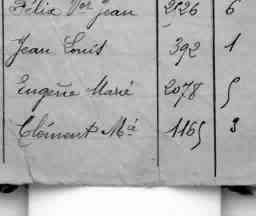 Félix Vor Jean 2526 6
Jean Louis 392 1
Eugène Marie 2078 5
Clément Mie 1165 3